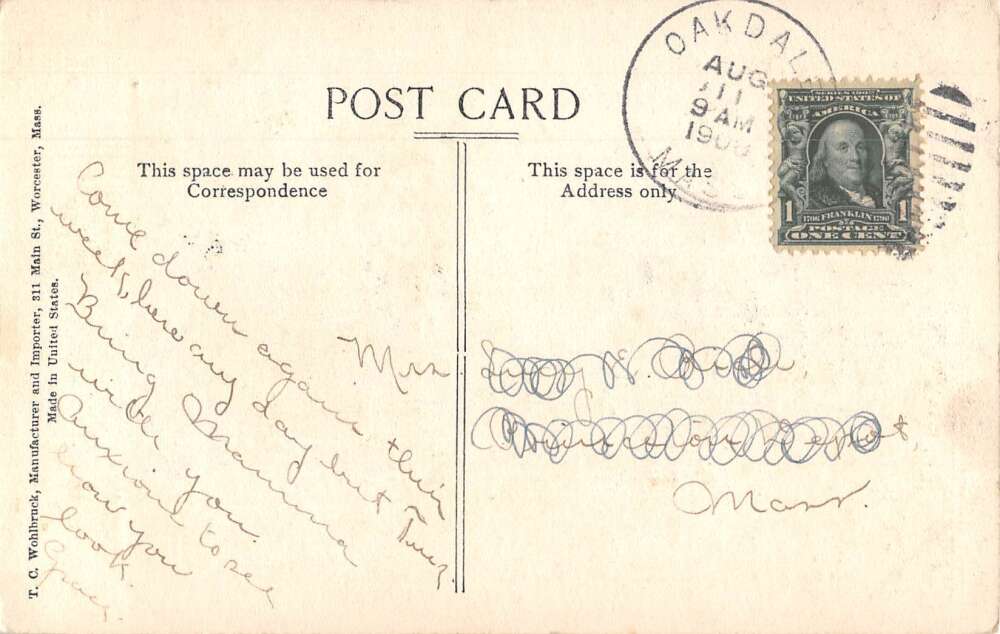 POST CARD
This space may be used for
Correspondence
This space is for the
Address only
OAKDAL
AUG
11
9 AM
190
MASS
SERIES 1902
UNITED STATES OF
AMERICA
1 1706 FRANKLIN 1790 1
POSTAGE
ONE CENT
T. C. Wohlbruck, Manufacturer and Importer, 311 Main St., Worcester, Mass.
Made in United States.
Come down again this
week, here any day but Tues.
Bring Mamma
with you.
Anxious to see
how you
look.
Grace
Miss
Depot,
Mass.